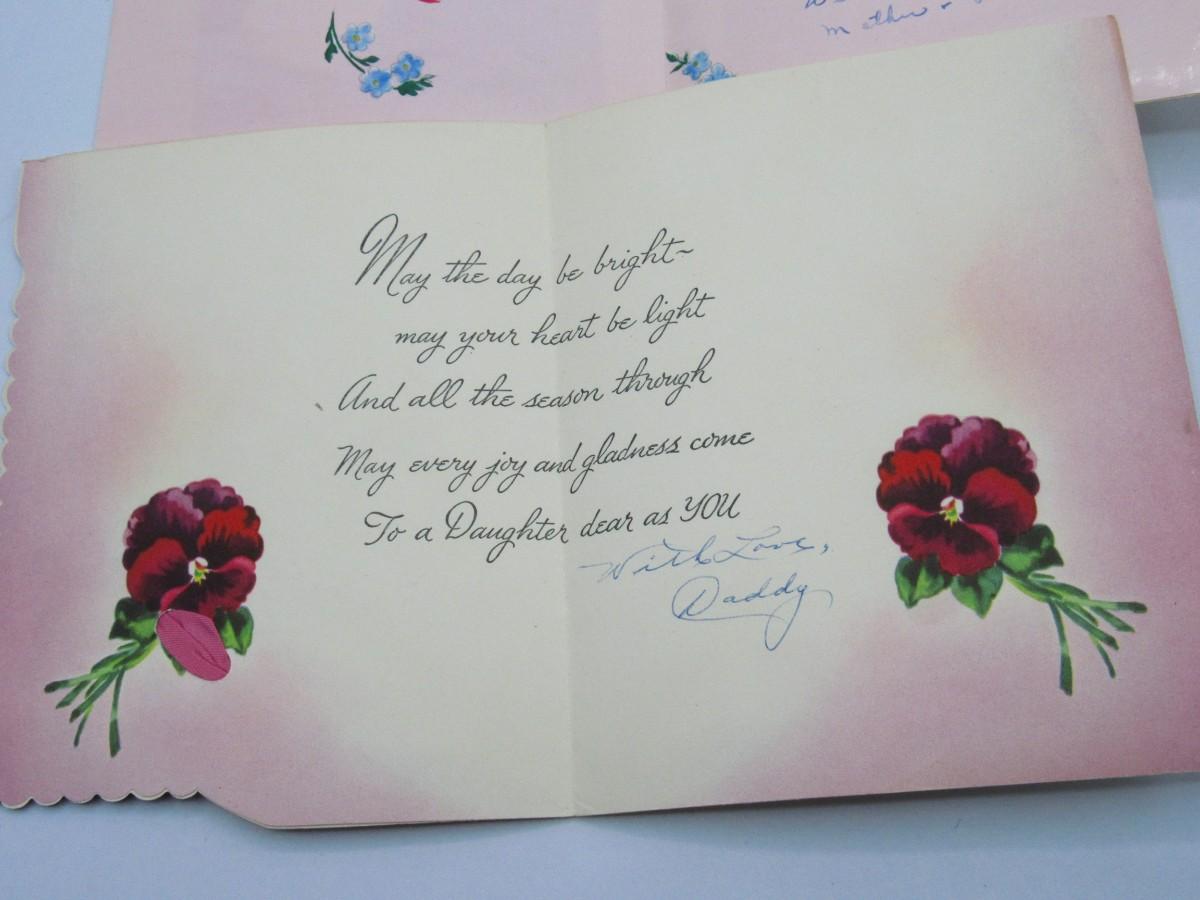 Mother
May the day be bright~
may your heart be light
And all the season through
May every joy and gladness come
To a Daughter dear as YOU
With Love,
Daddy